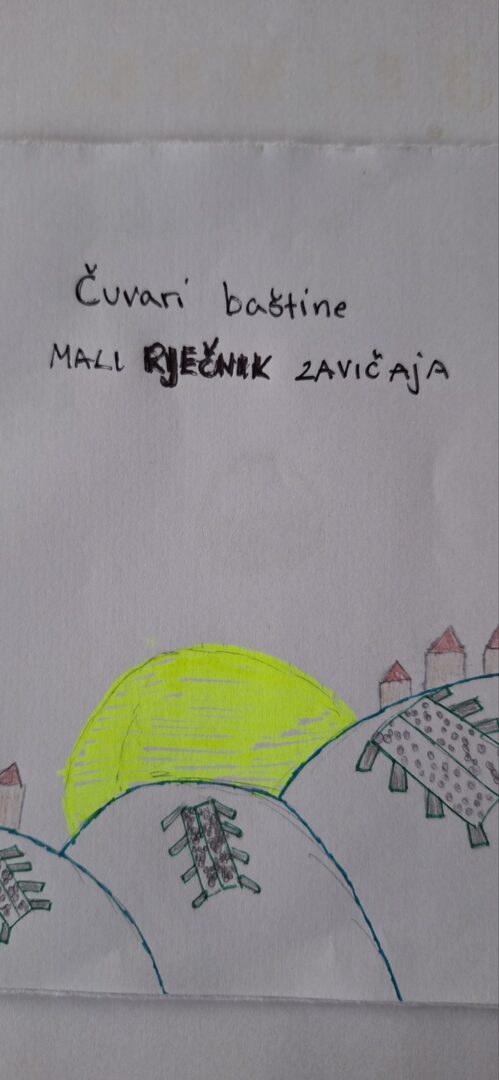 Čuvari baštine
MALI RJEČNIK ZAVIČAjA